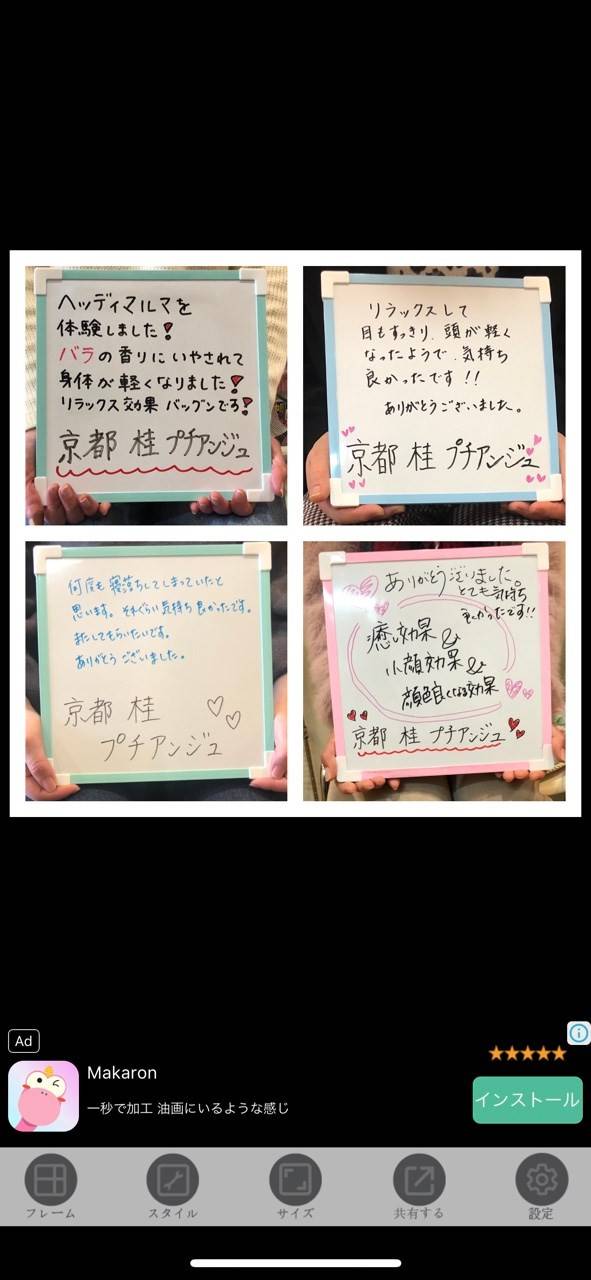 ヘッディマルマを
体験しました!
バラの香りにいやされて
身体が軽くなりました!
リラックス効果 バツグンです!
京都 桂 プチアンジュ
リラックスして
目もすっきり、頭が軽く
なったようで、気持ち
良かったです!!
ありがとうございました。
京都 桂 プチアンジュ
何度も寝落ちしてしまっていたと
思います。それぐらい気持ち良かったです。
またしてもらいたいです。
ありがとうございました。
京都 桂
プチアンジュ
ありがとうございました。
とても気持ち
良かったです!!
癒し効果&
小顔効果&
顔色良くなる効果
京都 桂 プチアンジュ
Ad
Makaron
一秒で加工 油画にいるような感じ
★★★★★
インストール
フレーム
スタイル
サイズ
共有する
設定